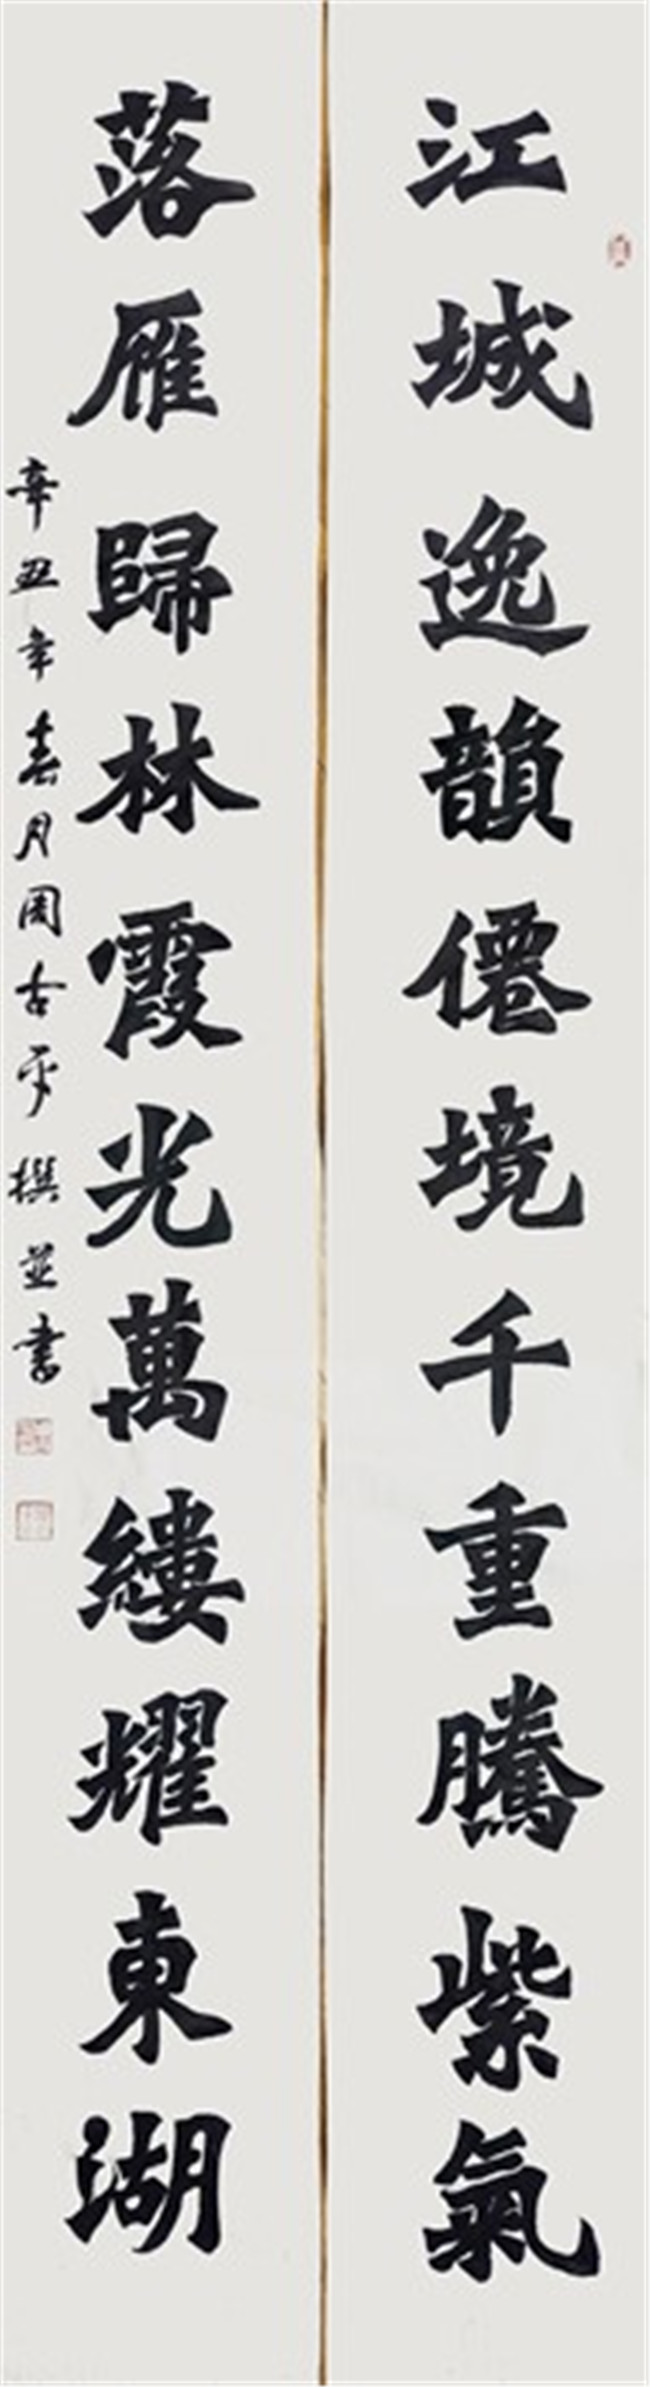 江城逸韻僊境千重騰紫氣
落雁歸林霞光萬縷耀東湖
辛丑年春月周古平撰並書